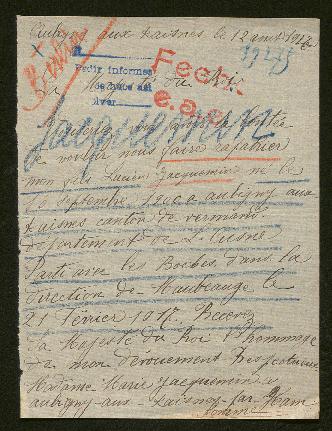 Aubigny aux Kaisnes le 12 août 1917
19275
Pedir informes
Fecha
a sa Majesté du Roi
Jacquemin
de vouloir nous faire rapatrier
mon fils Lucien Jacquemin né le
septembre 1900 a aubigny aux
Kaisnes canton de vermand
département de L'Aisne
Parti avec les Boches dans la
direction de Maubeuge le
21 Février 1917. Recevez
Sa Majesté du Roi l'hommage
de mon dévouement respectueux
Madame Marie Jacquemin a
aubigny-aux-Kaisnes-par-Ham
Somme